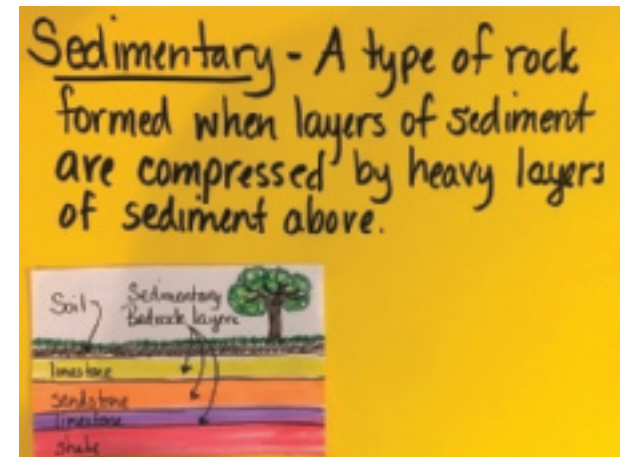 Sedimentary - A type of rock
formed when layers of sediment
are compressed by heavy layers
of sediment above.
Soil
Sedimentary
Bedrock layers
limestone
sandstone
limestone
shale